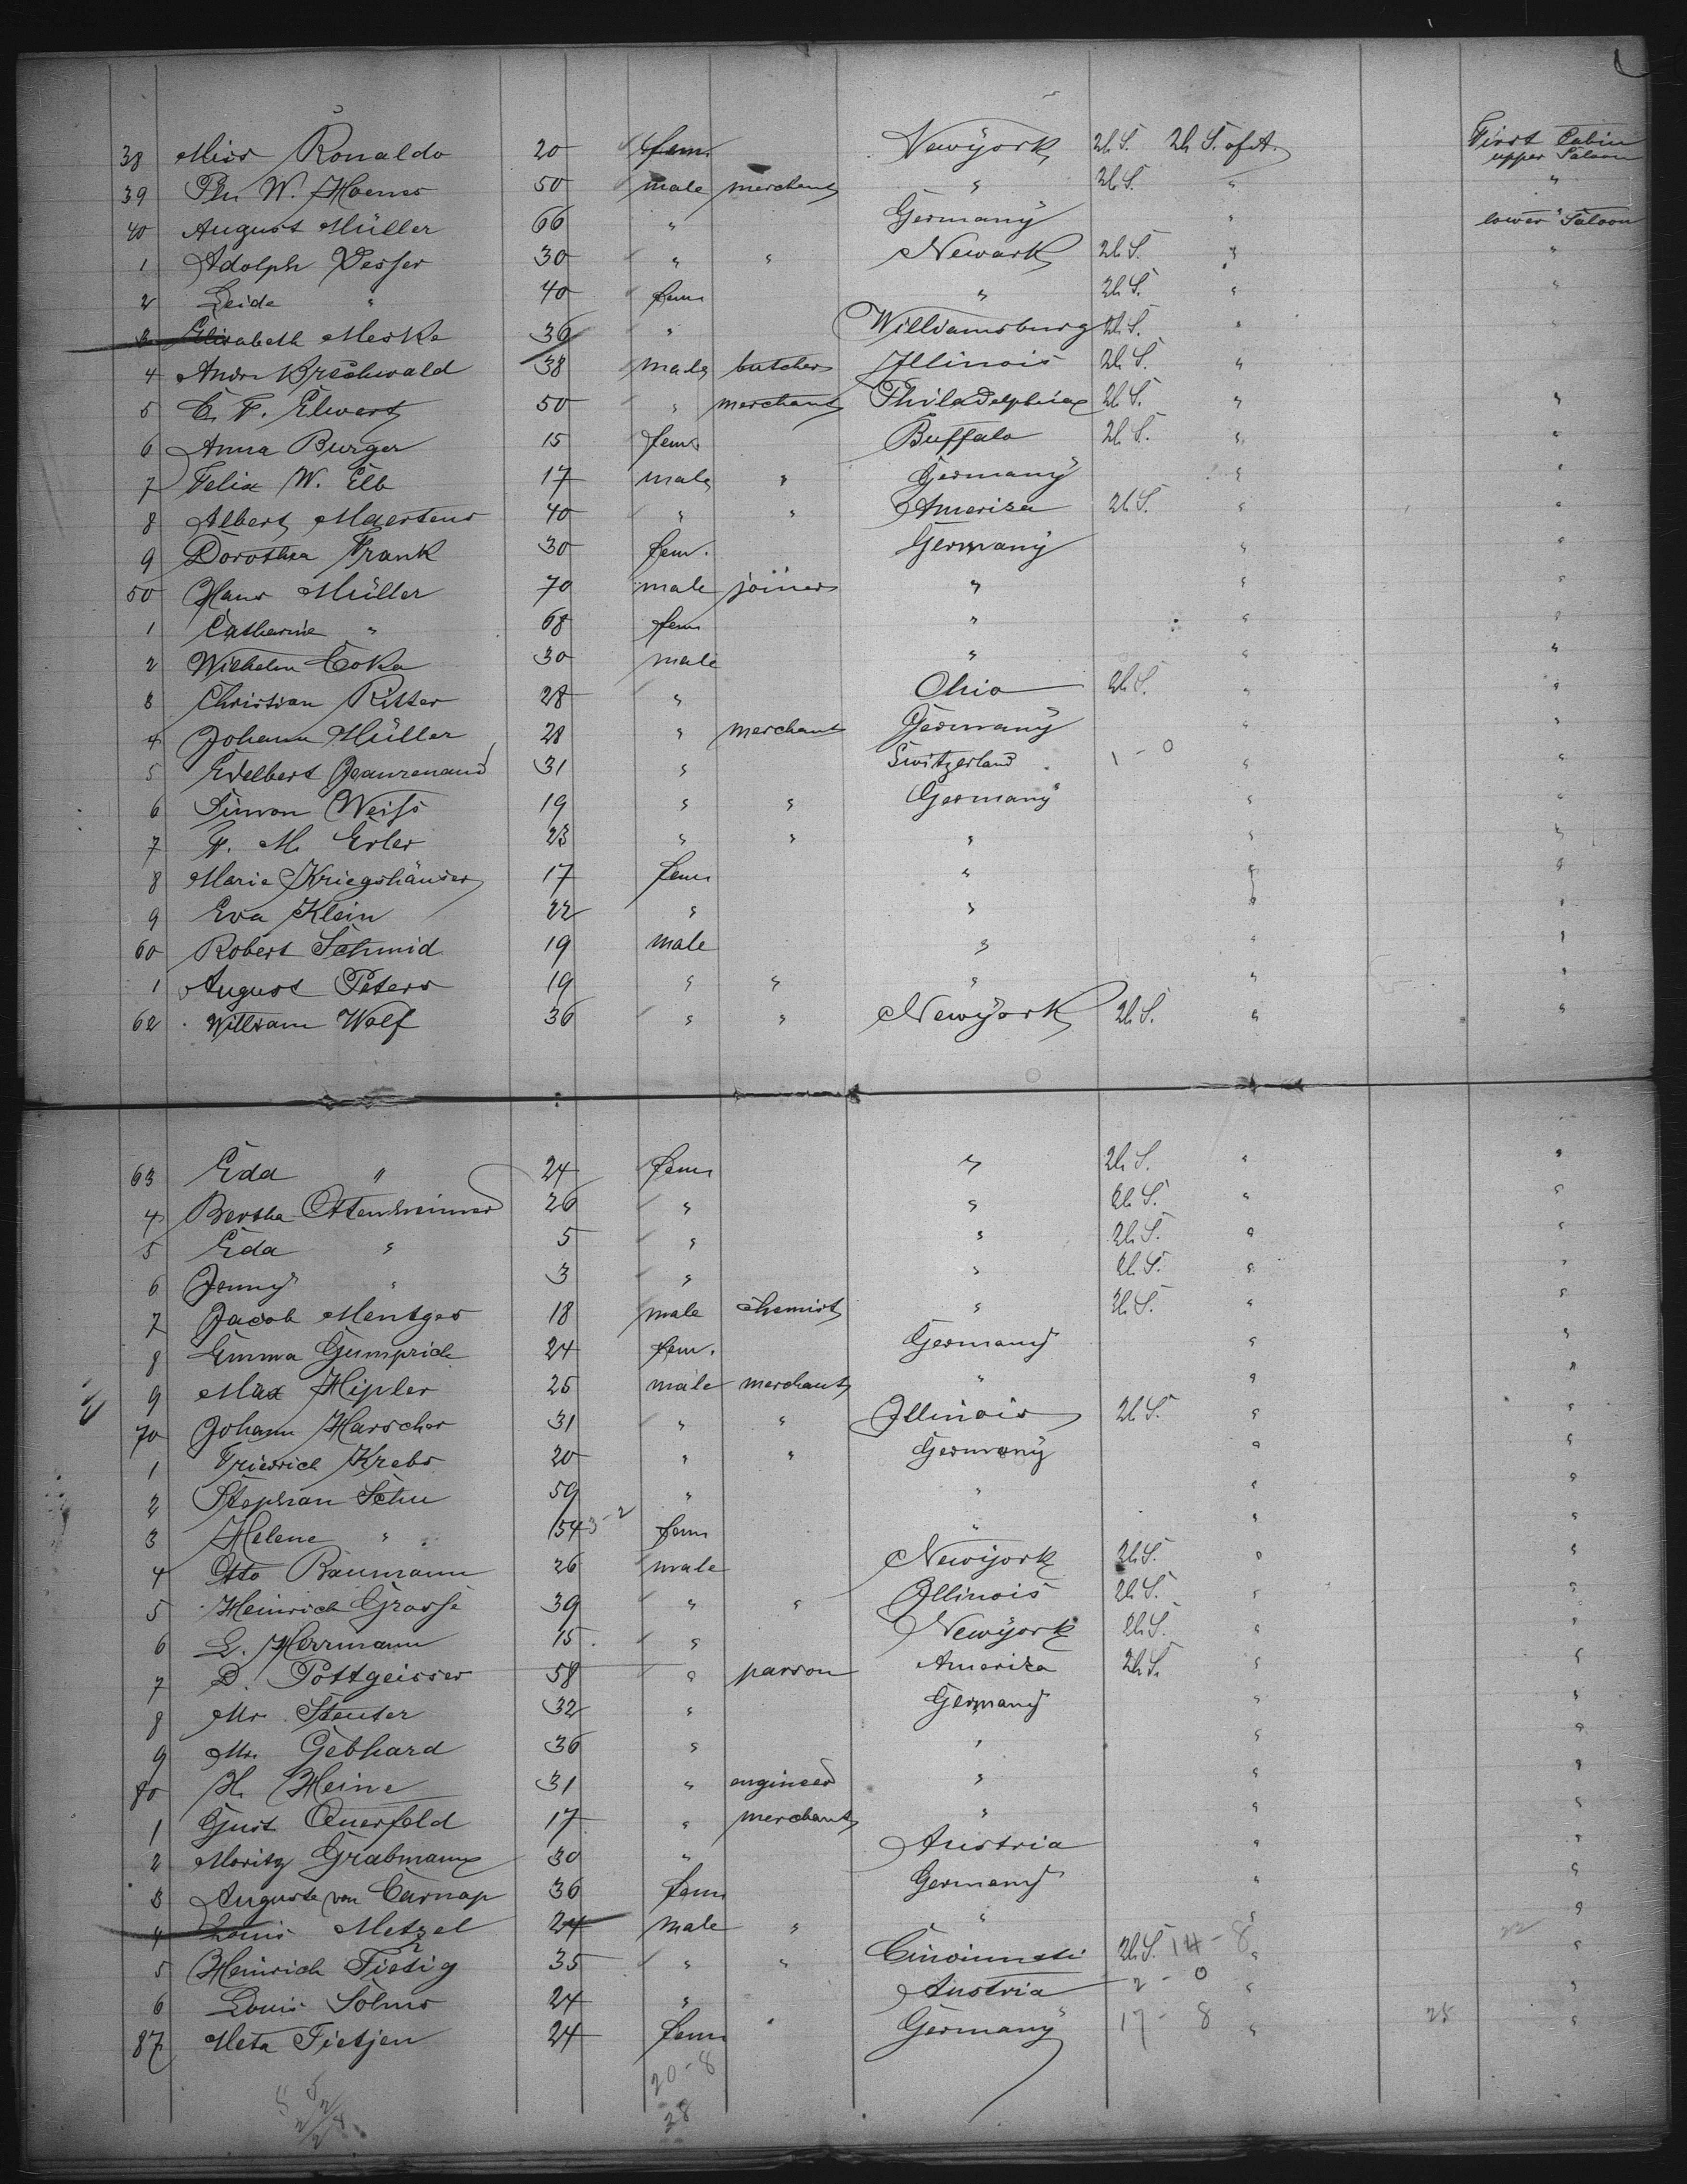 38 Miss Ronaldo 20 fem. Newÿork U.S. U.S. of A. First Cabin upper Saloon
39 Ph. W. Hoenes 50 male merchant " U.S. " "
40 August Müller 66 " Germanÿ " lower Saloon
1 Adolph Vesser 30 " " Newark U.S. " "
2 " 40 fem " U.S. " "
3 Elisabeth Meske 36 " Williamsburg U.S. " "
4 Andr. Breshwald 38 male butcher Illinois U.S. "
5 C. F. Elwert 50 " merchant Philadelphia U.S. " "
6 Anna Burger 15 fem. Buffalo U.S. " "
7 Felix W. Elb 17 male " Germanÿ " "
8 Albert Maertens 40 " " America U.S. " "
9 Dorothea Frank 30 fem. Germanÿ " "
50 Hans Müller 70 male joiner " " "
1 Catherine " 68 fem " " "
2 Wilhelm Coka 30 male " " "
3 Christian Ritter 28 " Ohio U.S. " "
4 Johann Müller 28 " merchant Germanÿ " "
5 Edelbert Jeanrenaud 31 " Switzerland 1 - 0 " "
6 Simon Weiss 19 " " Germanÿ " "
7 F. M. Erler 23 " " " " "
8 Marie Kriegshäuser 17 fem " " "
9 Eva Klein 22 " " " "
60 Robert Schmid 19 male " " "
1 August Peters 19 " " " " "
62 William Wolf 36 " " Newÿork U.S. " "
63 Eda " 24 fem " U.S. " "
4 Bertha Ottenheimer 26 " " U.S. " "
5 Eda " 5 " " U.S. " "
6 Jenny " 3 " " U.S. " "
7 Jacob Mentges 18 male chemist " U.S. " "
8 Emma Gumprich 24 fem. Germany " "
9 Max Hipler 25 male merchant " " "
70 Johann Harscher 31 " " Illinois U.S. " "
1 Friedrich Krebs 20 " " Germanÿ " "
2 Stephan Schu 59 " " " "
3 Helene " 54 3-2 fem " " "
4 Otto Baumann 26 male Newÿork U.S. " "
5 Heinrich Grosse 39 " " Illinois U.S. " "
6 L. Herrmann 15. " Newÿork U.S. " "
7 D. Pottgeisser 58 " parson America U.S. " "
8 Mr. Stenter 32 " Germany " "
9 Mr. Gebhard 36 " " " "
80 H. Heine 31 " engineer " " "
1 Gust. Querfeld 17 " merchant " " "
2 Moritz Grabmann 30 " Austria " "
3 Auguste von Carnap 36 fem Germany " "
4 Louis Metzel 24 male " " " 22 "
5 Heinrich Tietig 35 " " Cincinnati U.S. 14 - 8 " "
6 Louis Solms 24 " Austria 2 - 0 " "
87 Meta Tietjen 24 fem " Germanÿ 17 - 8 " 25 "
20-8
28